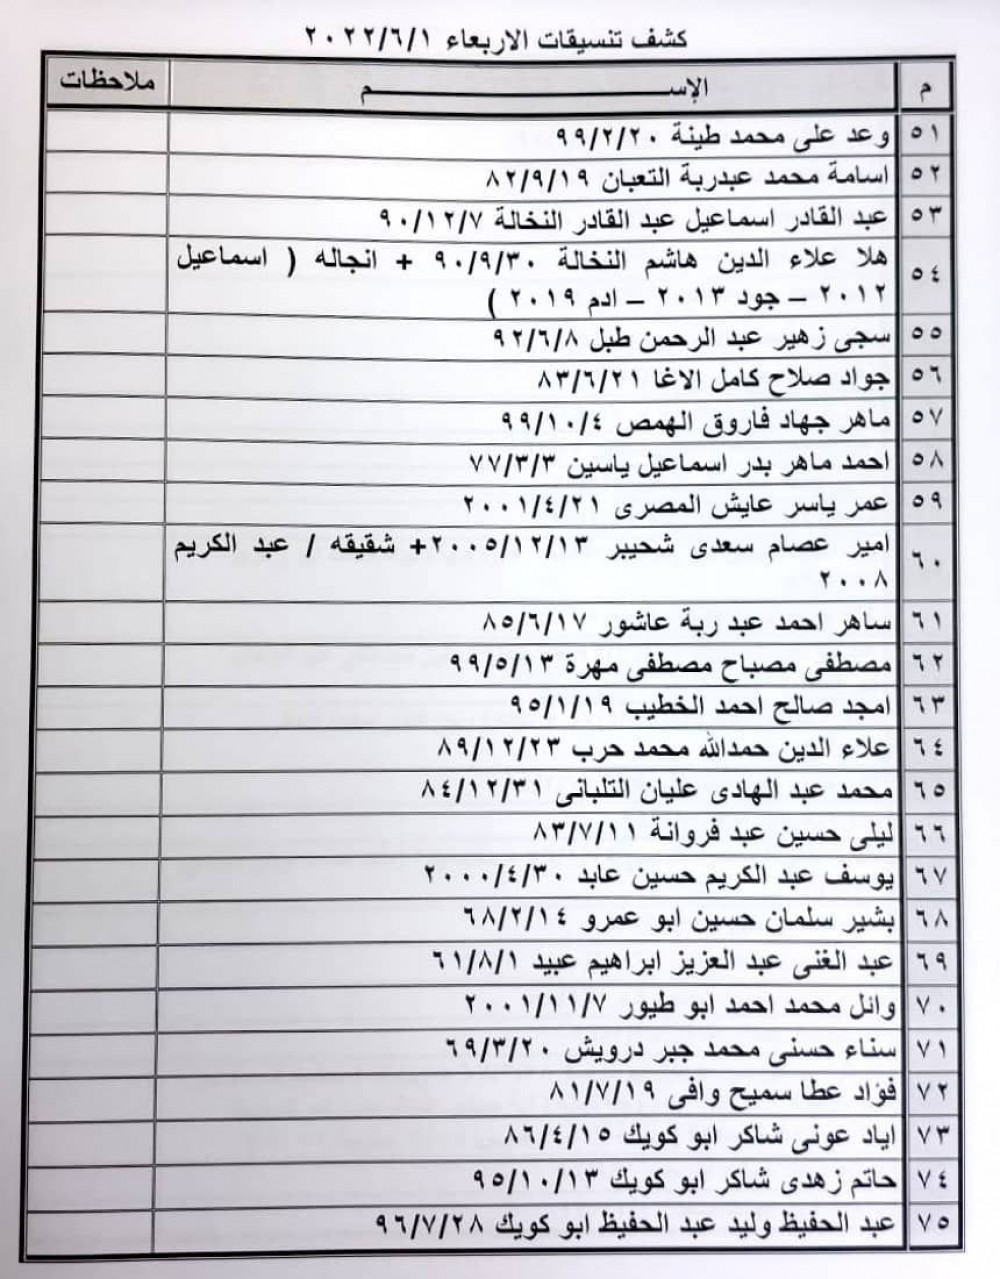 كشف تنسيقات الاربعاء ٢٠٢٢/٦/١
م الإســـــــــم ملاحظات
٥١ وعد على محمد طينة ٩٩/٢/٢٠
٥٢ اسامة محمد عبدربة التعبان ٨٢/٩/١٩
٥٣ عبد القادر اسماعيل عبد القادر النخالة ٩٠/١٢/٧
٥٤ هلا علاء الدين هاشم النخالة ٩٠/٩/٣٠ + انجاله ( اسماعيل
٢٠١٢ – جود ٢٠١٣ – ادم ٢٠١٩ )
٥٥ سجى زهير عبد الرحمن طبل ٩٢/٦/٨
٥٦ جواد صلاح كامل الاغا ٨٣/٦/٢١
٥٧ ماهر جهاد فاروق الهمص ٩٩/١٠/٤
٥٨ احمد ماهر بدر اسماعيل ياسين ٧٧/٣/٣
٥٩ عمر ياسر عايش المصرى ٢٠٠١/٤/٢١
٦٠ امير عصام سعدى شحيبر ٢٠٠٥/١٢/١٣+ شقيقه / عبد الكريم
٢٠٠٨
٦١ ساهر احمد عبد ربة عاشور ٨٥/٦/١٧
٦٢ مصطفى مصباح مصطفى مهرة ٩٩/٥/١٣
٦٣ امجد صالح احمد الخطيب ٩٥/١/١٩
٦٤ علاء الدين حمدالله محمد حرب ٨٩/١٢/٢٣
٦٥ محمد عبد الهادى عليان التلبانى ٨٤/١٢/٣١
٦٦ ليلى حسين عبد فروانة ٨٣/٧/١١
٦٧ يوسف عبد الكريم حسين عابد ٢٠٠٠/٤/٣٠
٦٨ بشير سلمان حسين ابو عمرو ٦٨/٢/١٤
٦٩ عبد الغنى عبد العزيز ابراهيم عبيد ٦١/٨/١
٧٠ وائل محمد احمد ابو طيور ٢٠٠١/١١/٧
٧١ سناء حسنى محمد جبر درويش ٦٩/٣/٢٠
٧٢ فؤاد عطا سميح وافى ٨١/٧/١٩
٧٣ اياد عونى شاكر ابو كويك ٨٦/٤/١٥
٧٤ حاتم زهدى شاكر ابو كويك ٩٥/١٠/١٣
٧٥ عبد الحفيظ وليد عبد الحفيظ ابو كويك ٩٦/٧/٢٨